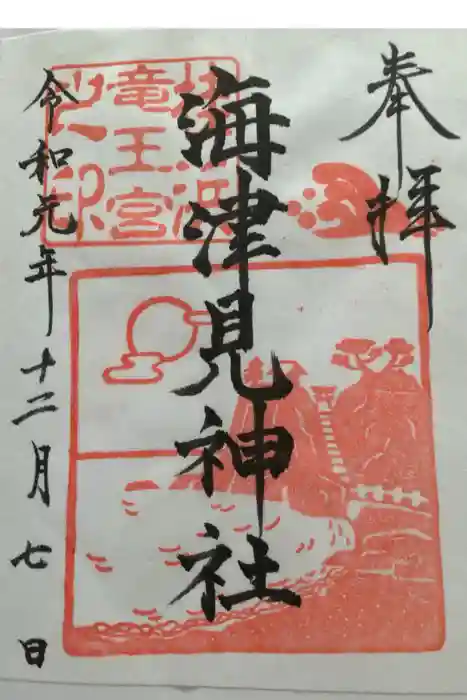 奉拝
海津見神社
桂浜
竜王宮
之印
令和元年十二月七日